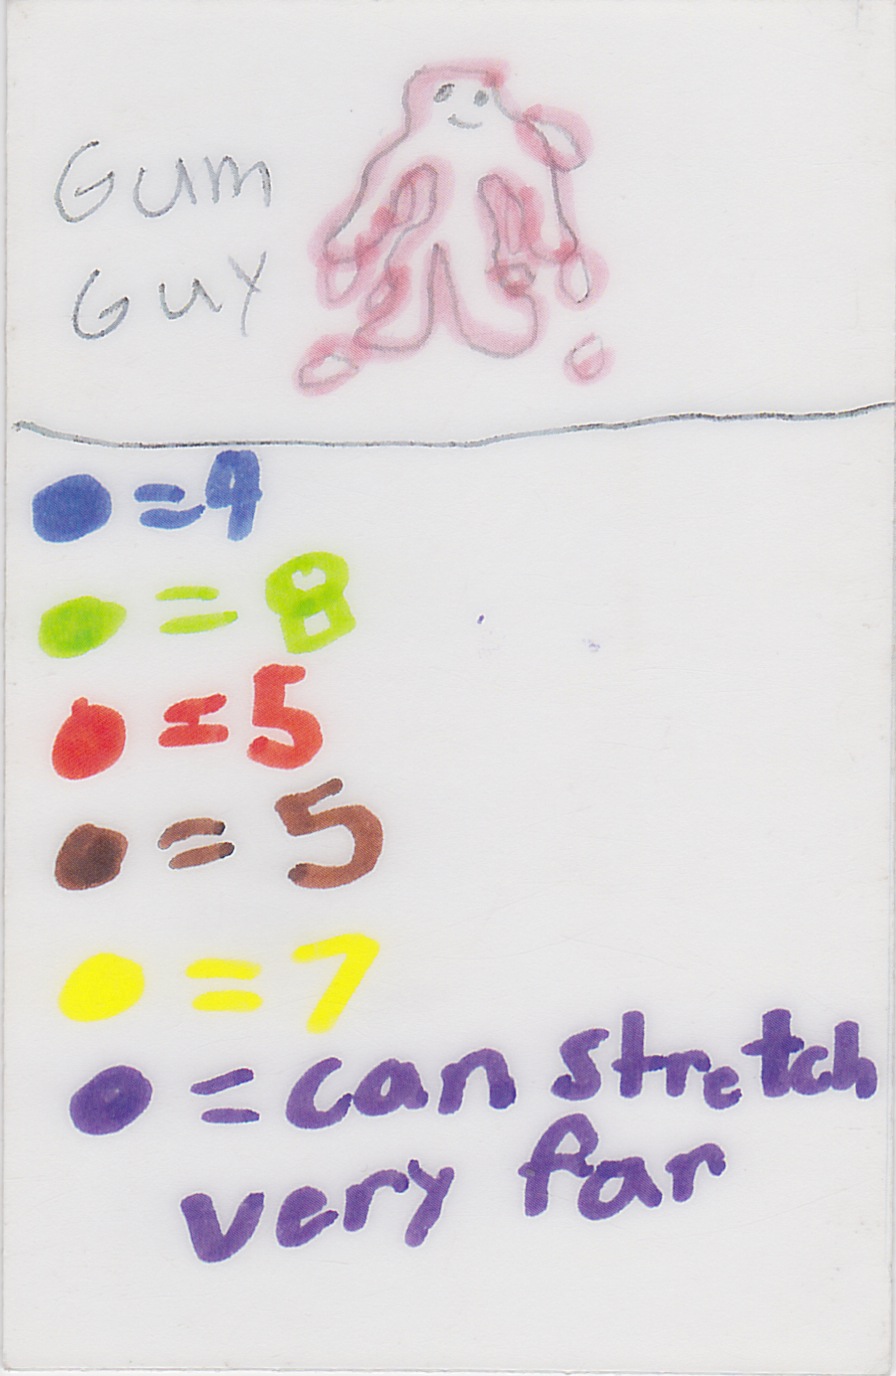 Gum
Guy
= 4
= 8
= 5
= 5
= 7
= can stretch
very far